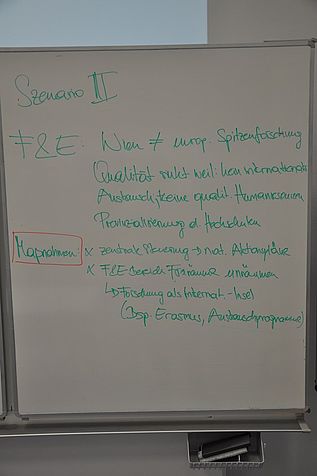 Szenario III
F&E: Wien ≠ europ. Spitzenforschung
Qualität sinkt weil: kein internationaler
Austausch, keine qualif. Humanressourcen
Provinzialisierung d. Hochschulen
Maßnahmen: x zentrale Steuerung → nat. Aktionspläne
x F&E-bereich Freiräume einräumen
↳ Forschung als Internat.-Insel
(Bsp. Erasmus, Austauschprogramme)